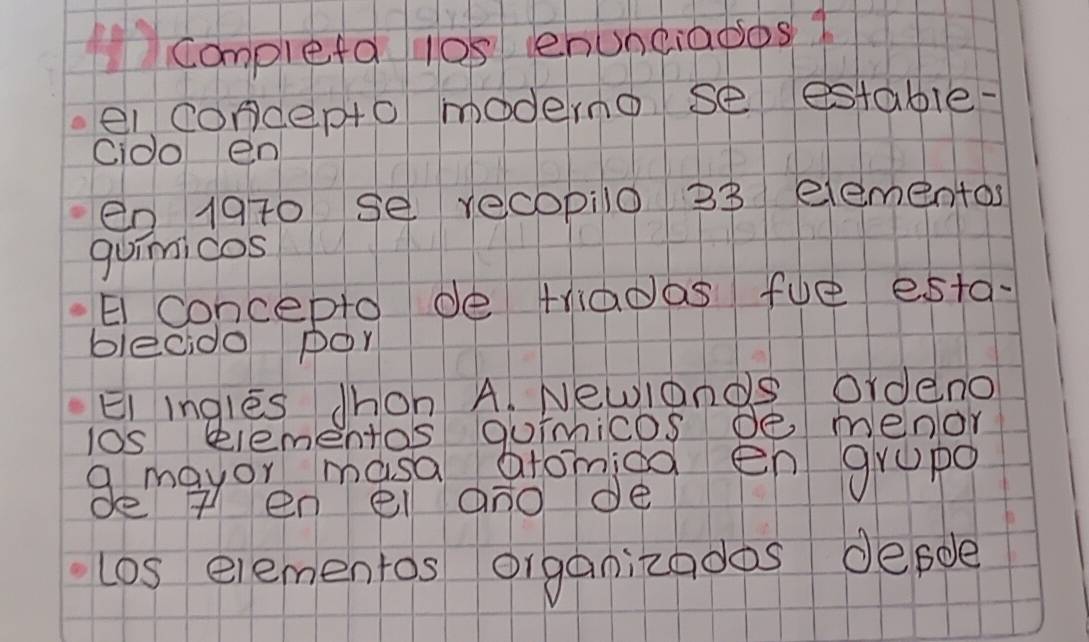 4) completa los enunciados:
• el concepto moderno se estable-
cido en
• en 1970 se recopilo 33 elementos
quimicos
• El concepto de triadas fue esta-
blecido por
• El inglés Jhon A. Newlands ordeno
los elementos quimicos de menor
a mayor masa atómica en grupo
de 7 en el año de
• Los elementos organizados desde